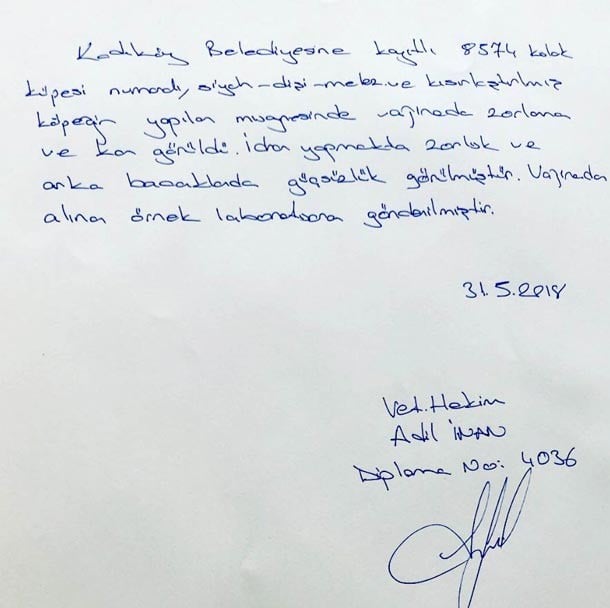 Kadıköy Belediyesine kayıtlı 8574 kulak
küpesi numaralı, siyah-dişi-melez ve kısırlaştırılmış
köpeğin yapılan muayenesinde vajinada zorlama
ve kan görüldü. İdrar yapmakta zorluk ve
arka bacaklarda güçsüzlük görülmüştür. Vajinada
alınan örnek laboratuara gönderilmiştir.
31.5.2018
Vet. Hekim
Adil İNAN
Diploma No: 4036